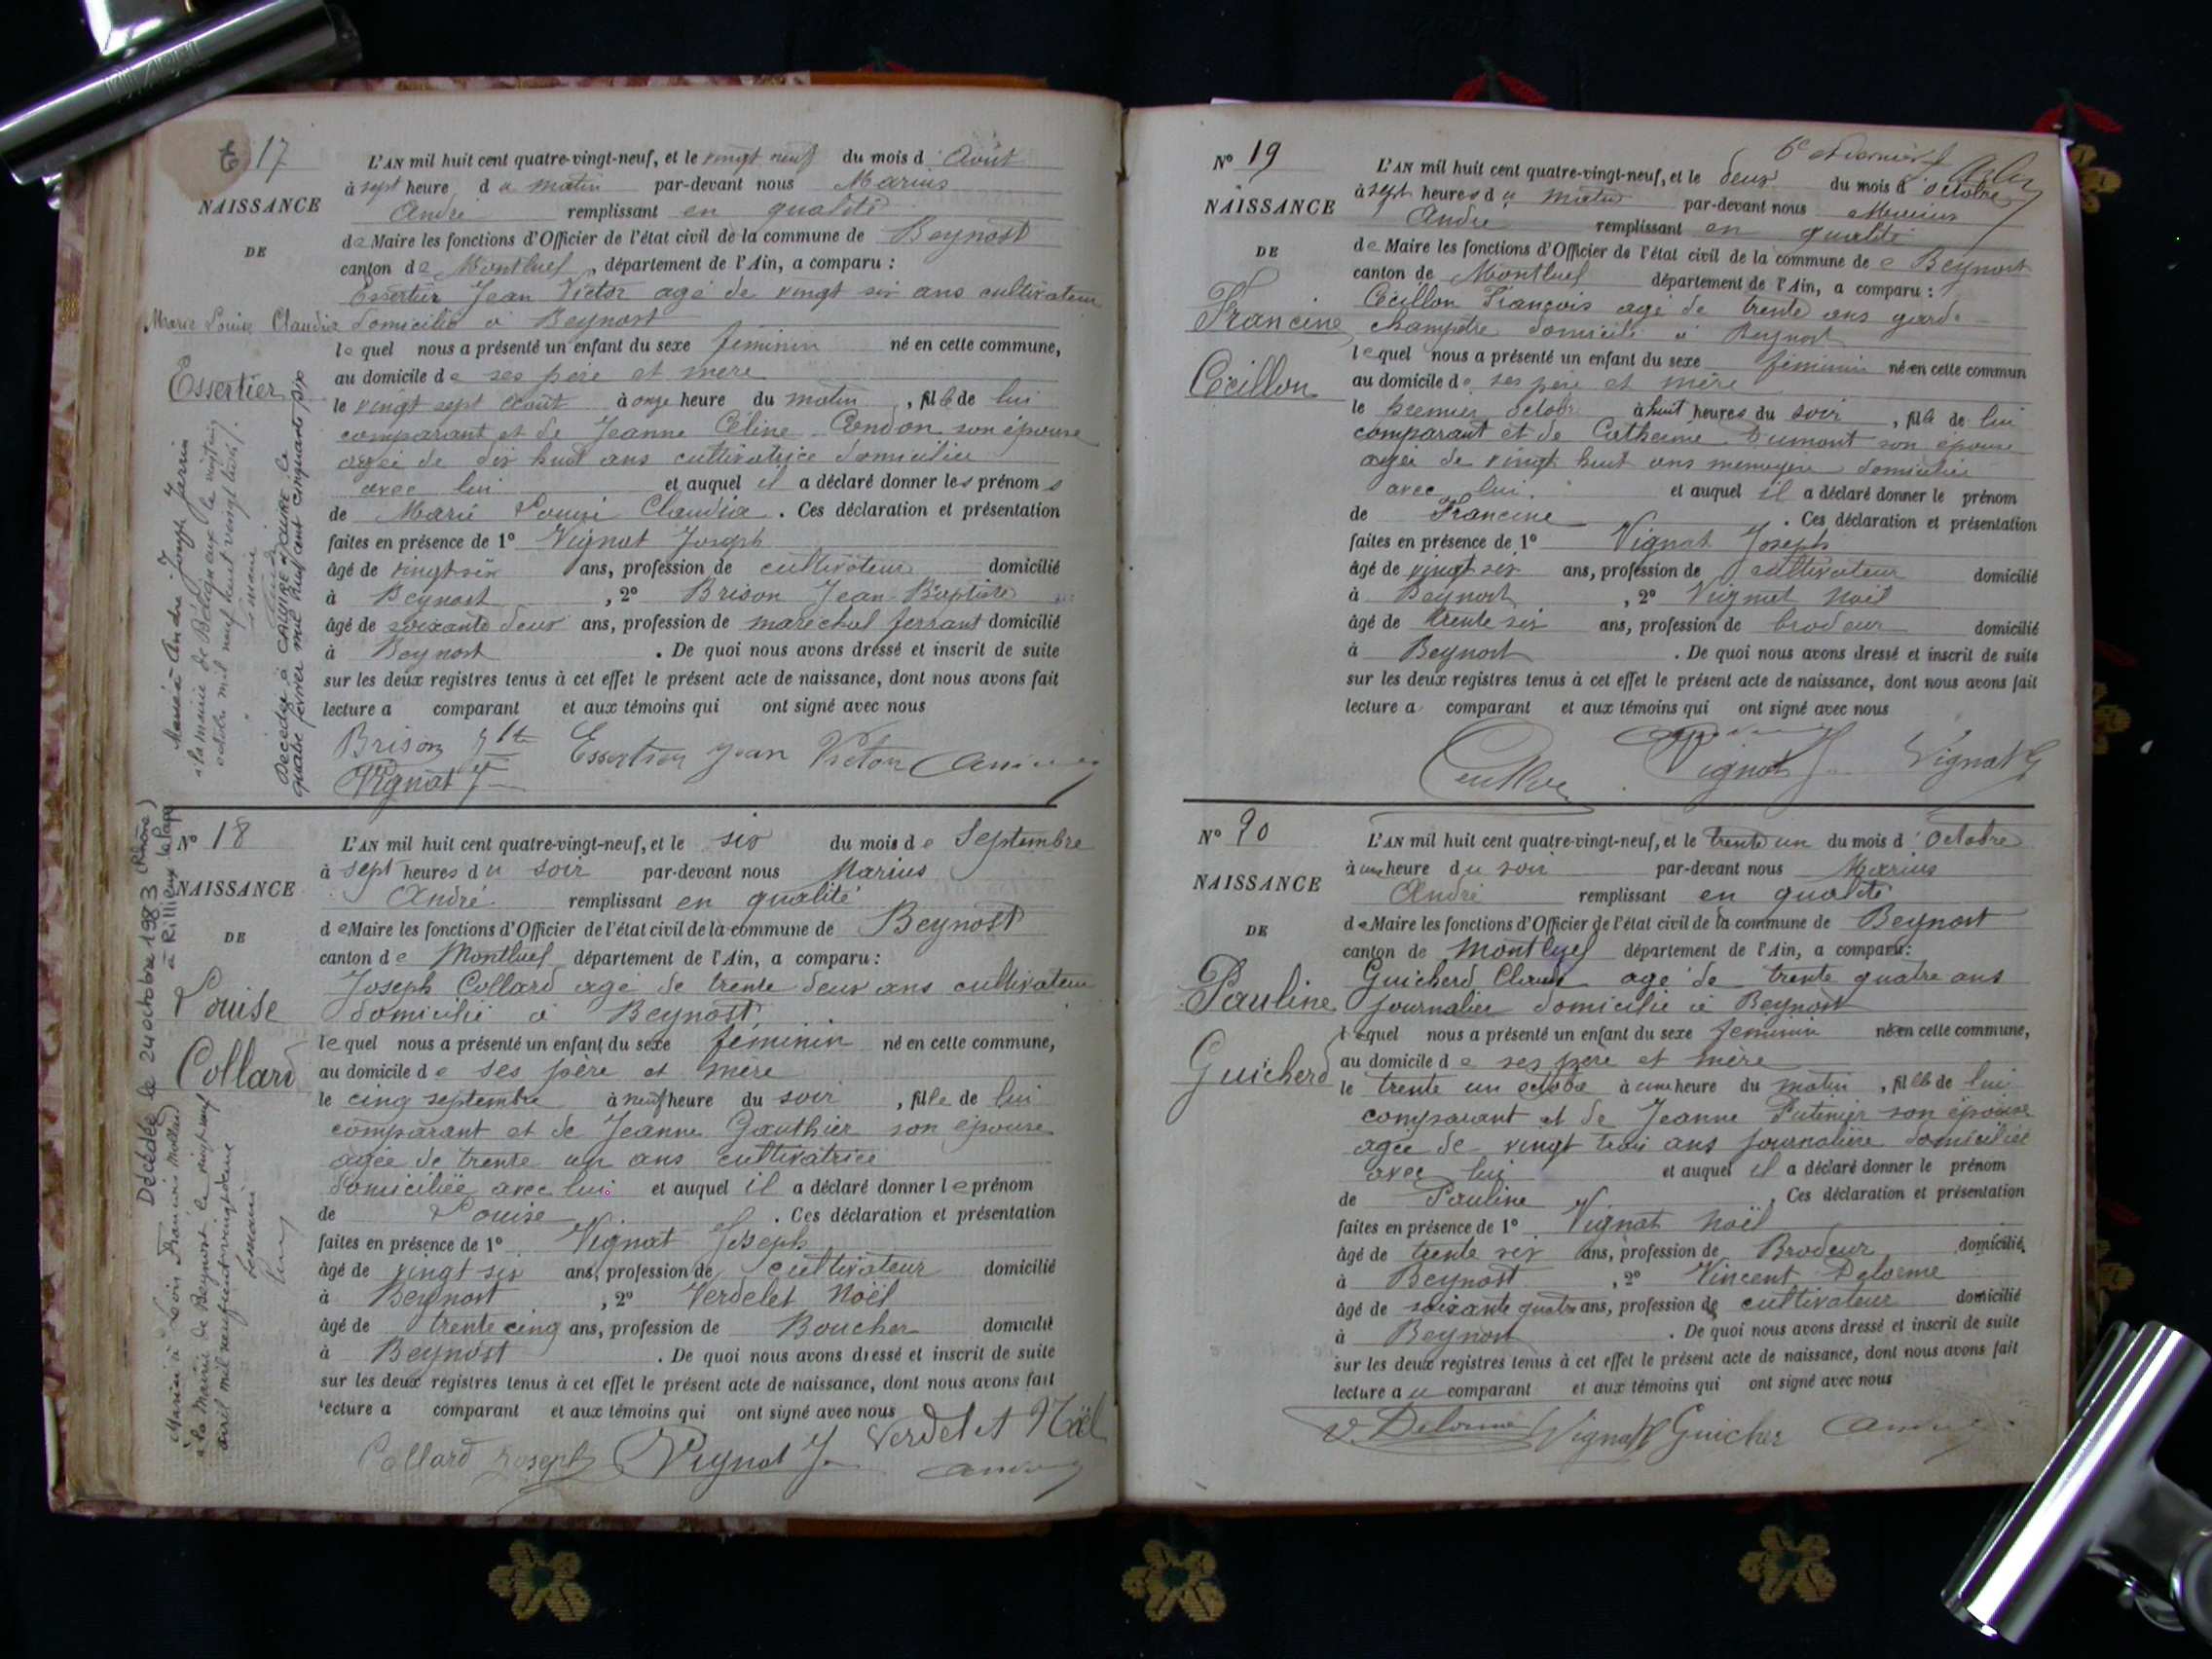 17
L'AN mil huit cent quatre-vingt-neuf, et le vingt neuf du mois d'Août
à sept heure du matin par-devant nous Marius
NAISSANCE
André remplissant en qualité
DE
de Maire les fonctions d'Officier de l'état civil de la commune de Beynost
canton de Montluel, département de l'Ain, a comparu :
Essertier Jean Victor agé de vingt six ans cultivateur
Marie Louise Claudia
domicilié à Beynost
lequel nous a présenté un enfant du sexe féminin né en cette commune,
Essertier
au domicile de ses père et mère
le vingt sept Août à onze heure du matin, fille de lui
comparant et de Jeanne Céline Condon son épouse
agée de dix huit ans cultivatrice domiciliée
avec lui et auquel il a déclaré donner les prénoms
de Marie Louise Claudia. Ces déclaration et présentation
faites en présence de 1° Vignat Joseph
âgé de vingt six ans, profession de cultivateur domicilié
à Beynost, 2° Brison Jean-Baptiste
âgé de soixante deux ans, profession de maréchal ferrant domicilié
à Beynost. De quoi nous avons dressé et inscrit de suite
sur les deux registres tenus à cet effet le présent acte de naissance, dont nous avons fait
lecture a comparant et aux témoins qui ont signé avec nous
Brison Essertier Jean Victor
Vignat J
Marié à André Joseph
à la mairie de
octobre mil neuf cent vingt
Décédée à CALUIRE le
quatre février mil neuf cent cinquante six
N° 18
L'AN mil huit cent quatre-vingt-neuf, et le six du mois de Septembre
à sept heures du soir par-devant nous Marius
NAISSANCE
André remplissant en qualité
DE
de Maire les fonctions d'Officier de l'état civil de la commune de Beynost
canton de Montluel département de l'Ain, a comparu :
Joseph Collard agé de trente deux ans cultivateur
Louise
domicilié à Beynost
lequel nous a présenté un enfant du sexe féminin né en cette commune,
Collard
au domicile de ses père et mère
le cinq septembre à neuf heure du soir, fille de lui
comparant et de Jeanne Gauthier son épouse
agée de trente un ans cultivatrice
domiciliée avec lui et auquel il a déclaré donner le prénom
de Louise. Ces déclaration et présentation
faites en présence de 1° Vignat Joseph
âgé de vingt six ans, profession de cultivateur domicilié
à Beynost, 2° Verdelet Noël
âgé de trente cinq ans, profession de Boucher domicilié
à Beynost. De quoi nous avons dressé et inscrit de suite
sur les deux registres tenus à cet effet le présent acte de naissance, dont nous avons fait
lecture a comparant et aux témoins qui ont signé avec nous
Collard Joseph Vignat J Verdelet Noël
Décédée le 24 octobre 1983
à Rillieux la pape (Rhône)
à la Mairie de Beynost le vingt neuf
avril mil neuf cent vingt
N° 19
6e et dernier
L'AN mil huit cent quatre-vingt-neuf, et le deux du mois d'octobre
à sept heures du matin par-devant nous Marius
NAISSANCE
André remplissant en qualité
DE
de Maire les fonctions d'Officier de l'état civil de la commune de Beynost
canton de Montluel département de l'Ain, a comparu :
Cécillon François agé de trente ans garde
Francine
champêtre domicilié à Beynost
lequel nous a présenté un enfant du sexe féminin né en cette commun
Cécillon
au domicile de ses père et mère
le premier octobre à huit heures du soir, fille de lui
comparant et de Catherine Dumont son épouse
agée de vingt huit ans menagère domiciliée
avec lui. et auquel il a déclaré donner le prénom
de Francine. Ces déclaration et présentation
faites en présence de 1° Vignat Joseph
âgé de vingt six ans, profession de cultivateur domicilié
à Beynost, 2° Vignat Noël
âgé de trente six ans, profession de brodeur domicilié
à Beynost. De quoi nous avons dressé et inscrit de suite
sur les deux registres tenus à cet effet le présent acte de naissance, dont nous avons fait
lecture a comparant et aux témoins qui ont signé avec nous
Vignat J Vignat
N° 20
L'AN mil huit cent quatre-vingt-neuf, et le trente un du mois d'Octobre
à une heure du soir par-devant nous Marius
NAISSANCE
André remplissant en qualité
DE
de Maire les fonctions d'Officier de l'état civil de la commune de Beynost
canton de Montluel département de l'Ain, a comparu :
Guicherd Claude agé de trente quatre ans
Pauline
journalier domicilié à Beynost
lequel nous a présenté un enfant du sexe féminin né en cette commune,
Guicherd
au domicile de ses père et mère
le trente un octobre à une heure du matin, fille de lui
comparant et de Jeanne Putinier son épouse
agée de vingt trois ans journalière domiciliée
avec lui et auquel il a déclaré donner le prénom
de Pauline. Ces déclaration et présentation
faites en présence de 1° Vignat Noël
âgé de trente six ans, profession de Brodeur domicilié
à Beynost, 2° Vincent Delorme
âgé de soixante quatre ans, profession de cultivateur domicilié
à Beynost. De quoi nous avons dressé et inscrit de suite
sur les deux registres tenus à cet effet le présent acte de naissance, dont nous avons fait
lecture au comparant et aux témoins qui ont signé avec nous
V. Delorme Vignat Guicher